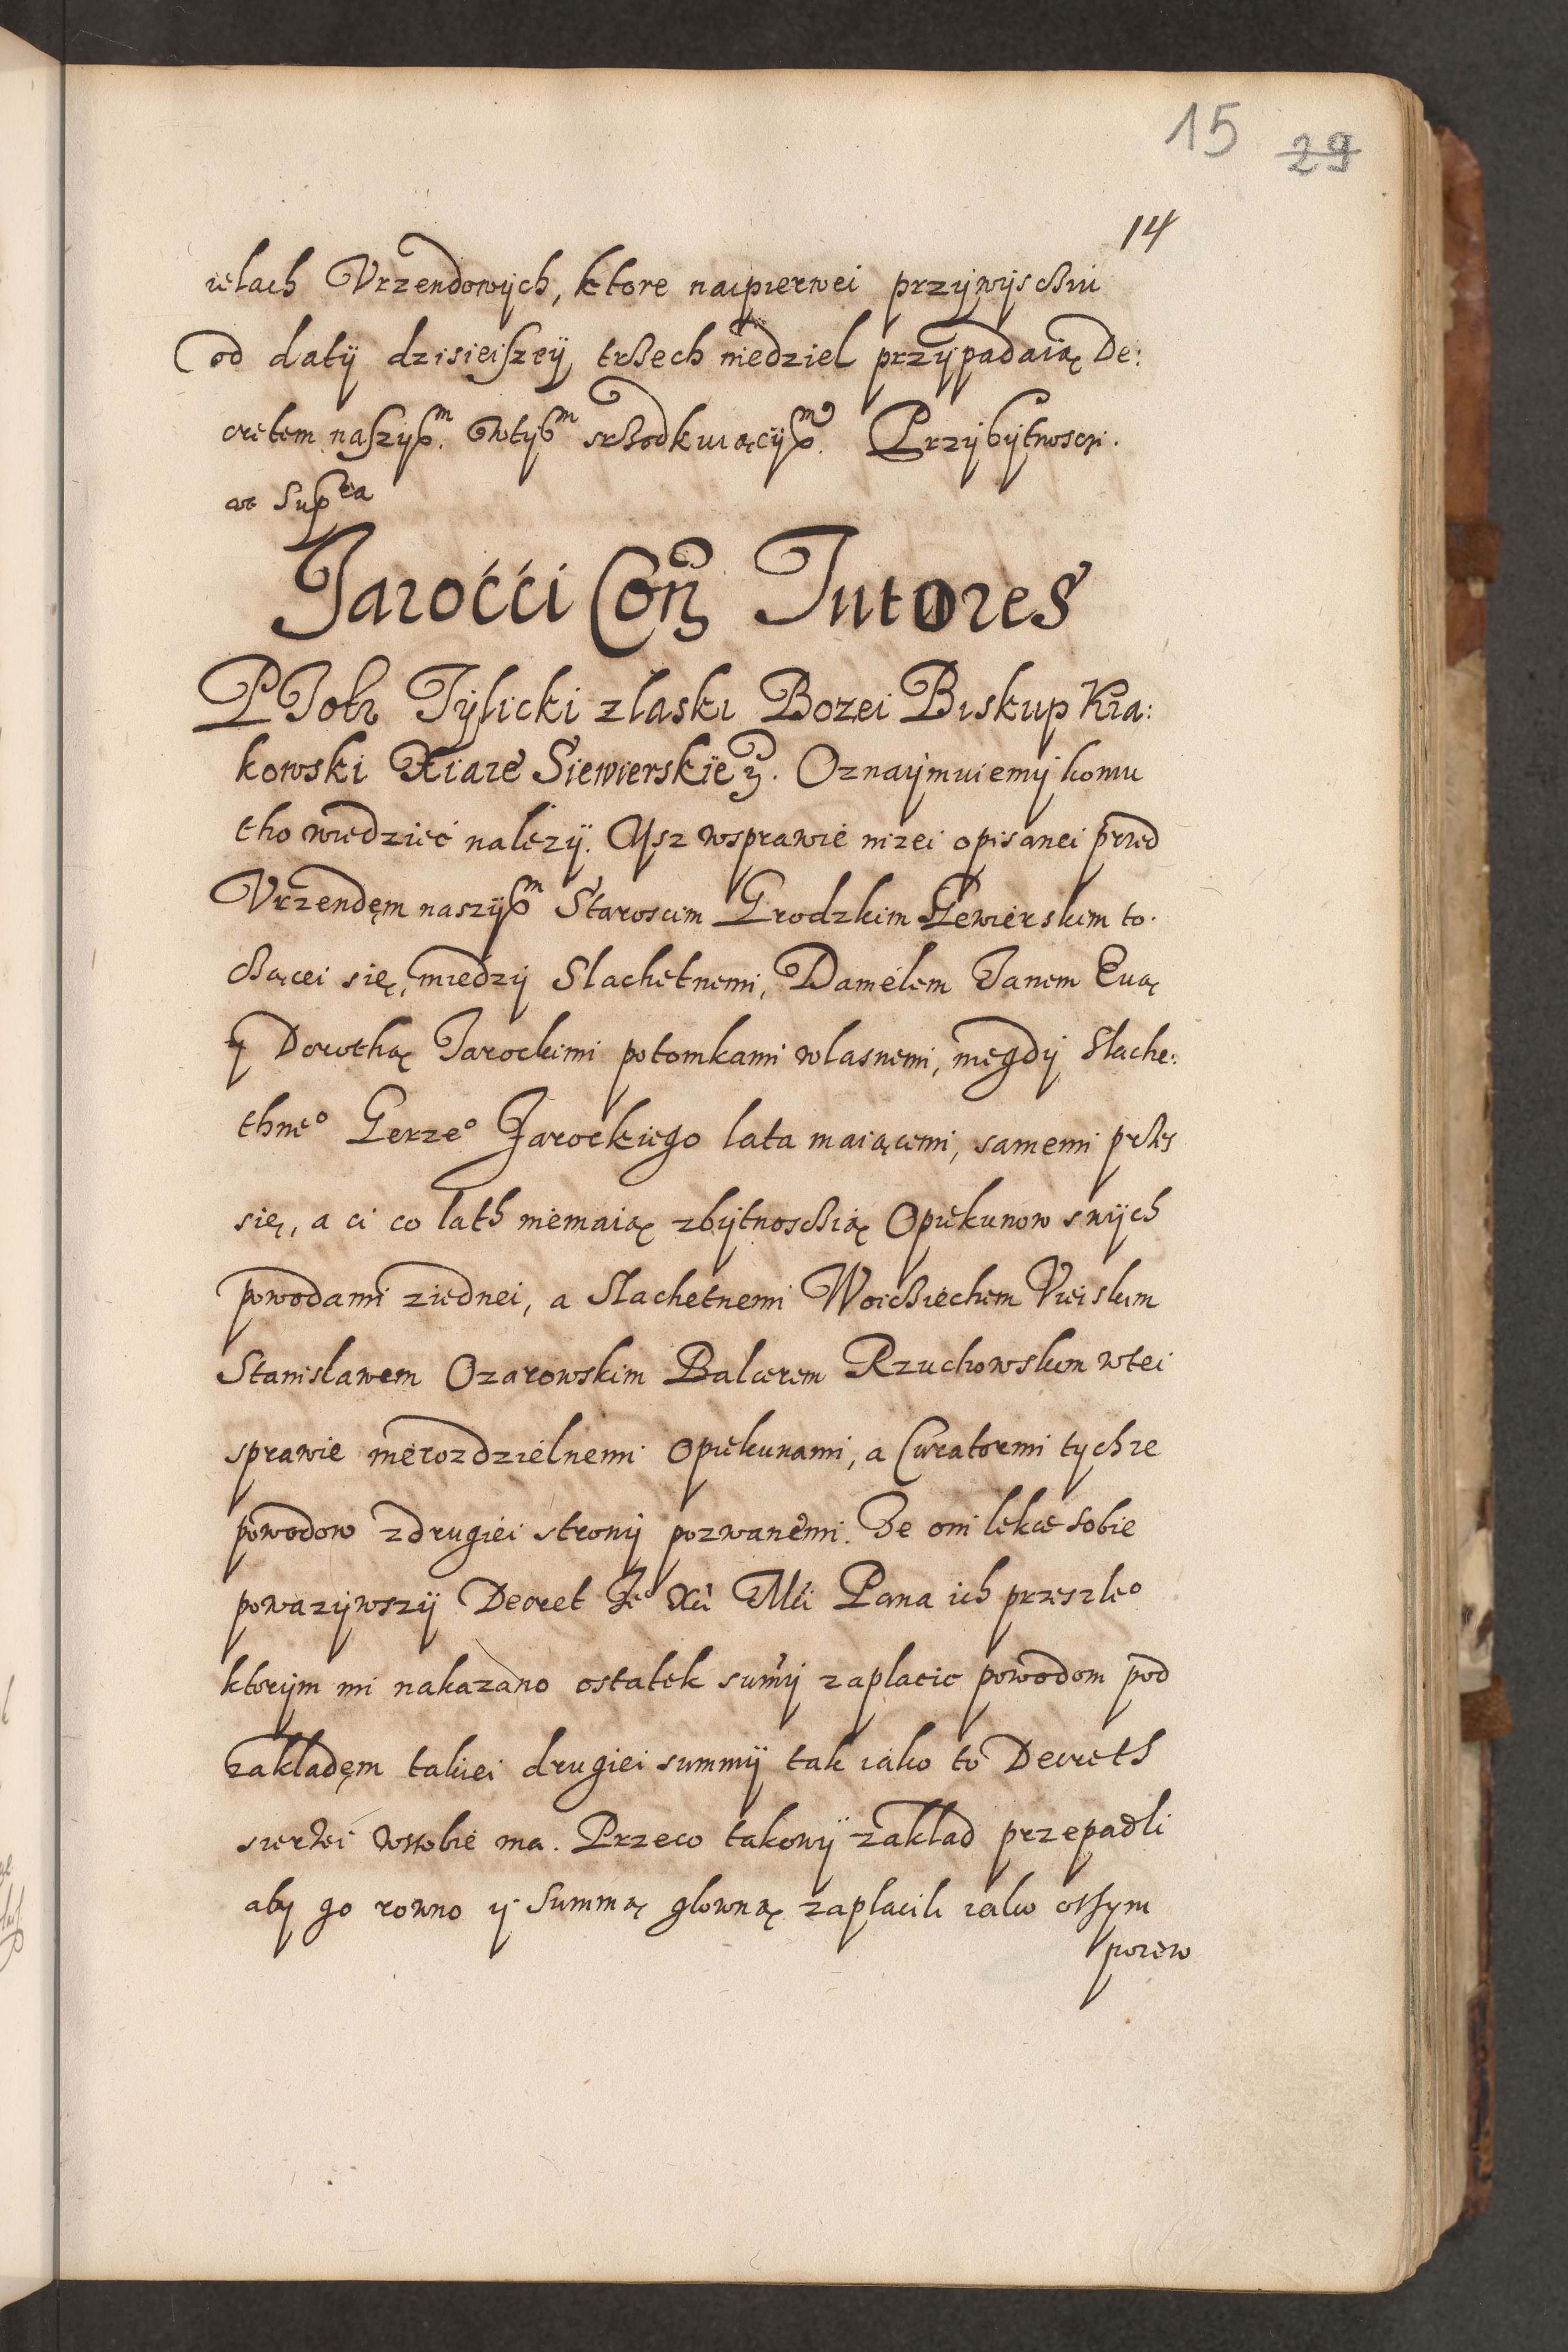 15 29
14
ielach Vrzendowych, ktore naipierwei przywysciu
od daty dzisieiszey trzech niedziel przypadaią De:
cretem naszym. wtym srzodkuiącym. Przybytnosci.
ut supra
Jarocci Con Tutores
PIotr Tylicki z laski Bozei Biskup Kra:
kowski Xiąze Siewierskie. Oznaymuiemy komu
tho wiedzieć nalezy. Isz wsprawie nizei opisanei przed
Vrzendęm naszym Staroscim Grodzkim Siewierskim to.
czącei się, miedzy Slachetnemi, Danielem Janem Euą
y Dorothą Jarockimi potomkami wlasnemi, niegdy Slache:
thne° Gerze° Jarockiego lata maiącemi, samemi przes
się, a ci co lath niemaią zbytnoscią Opiekunow swych
powodami ziednei, a Slachetnemi Woiciechem Uieiskim
Stanislawem Ozarowskim Balcerem Rzuchowskim wtei
sprawie nierozdzielnemi opiekunami, a Curatormi tychze
powodow zdrugiei strony pozwanemi. Ze oni lekce sobie
powazywszy Decret Je° Xci Mći Pana ich przeszle°
ktorym im nakazano ostatek sumy zaplacic powodom pod
zakladęm takiei drugiei summy tak iako to Decreth
szerzei wsobie ma. Przeco takowy zaklad przepadli
aby go rowno y summą glowną zaplacili iako ossym
pozew